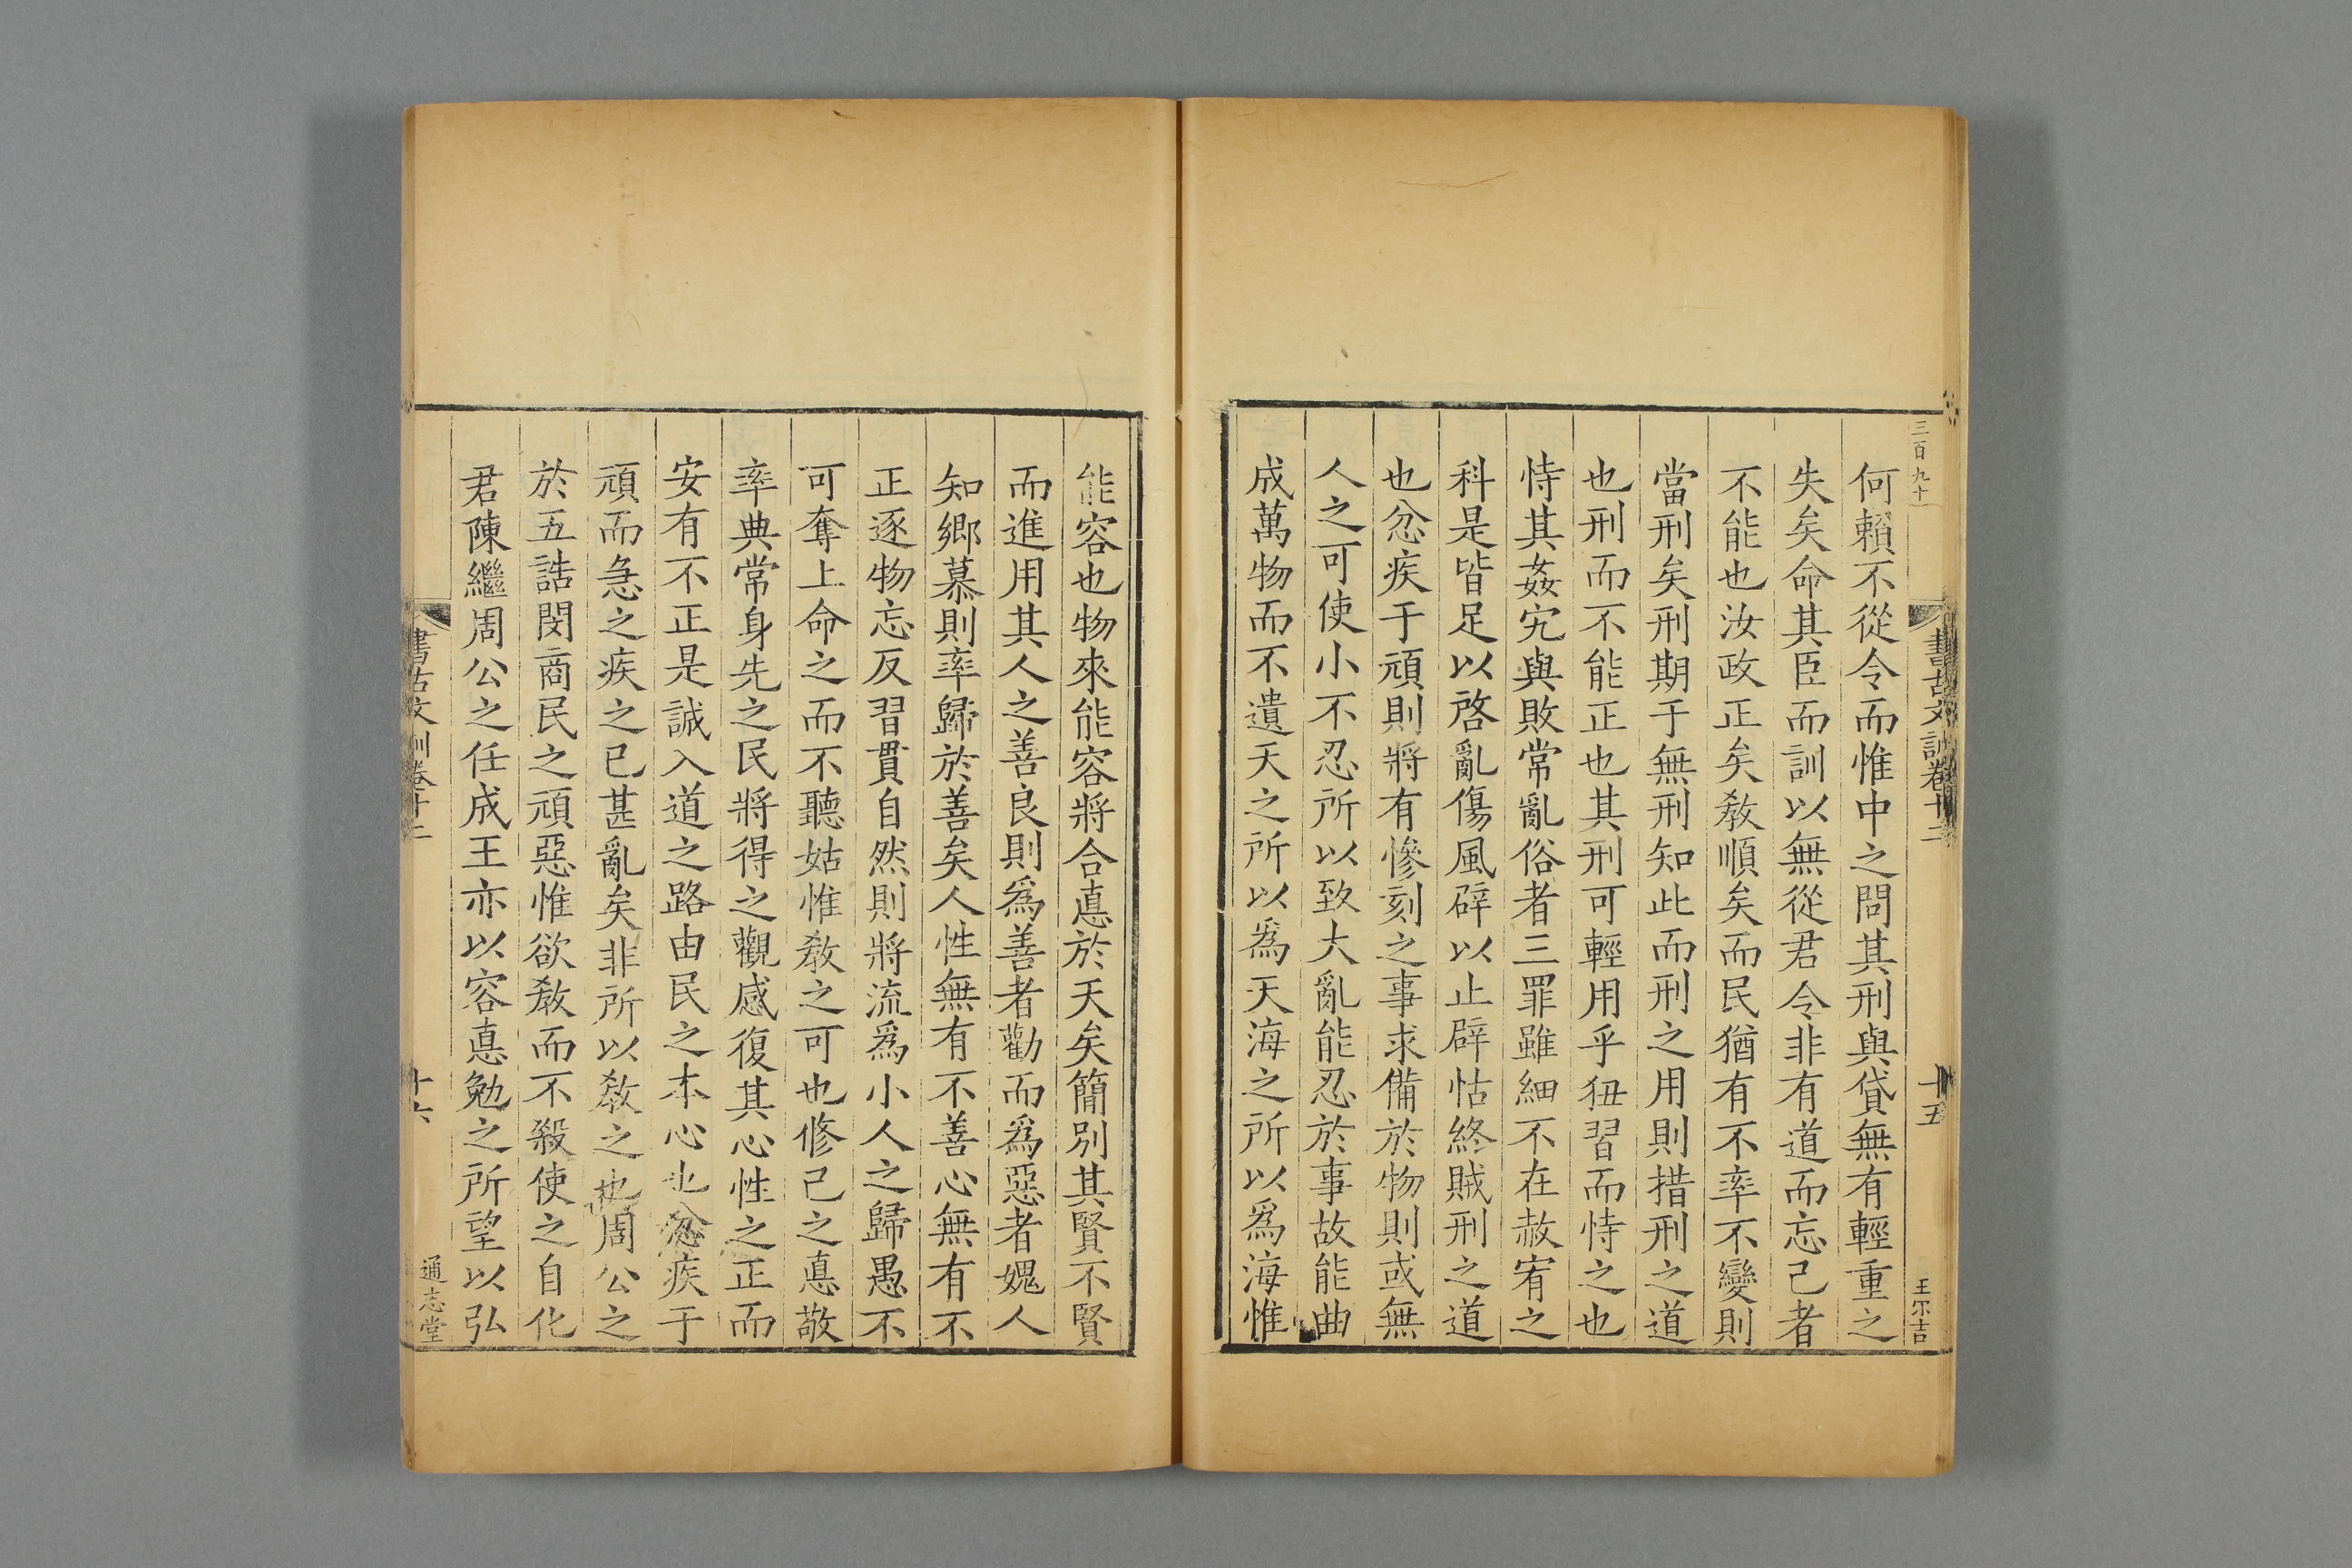 三百九十
書古文訓卷十二
十五
王尔吉
何賴不從令而惟中之問其刑與貸無有輕重之
失矣命其臣而訓以無從君令非有道而忘己者
不能也汝政正矣敎順矣而民猶有不率不變則
當刑矣刑期于無刑知此而刑之用則措刑之道
也刑而不能正也其刑可輕用乎狃習而恃之也
恃其姦宄與敗常亂俗者三罪雖細不在赦宥之
科是皆足以啓亂傷風辟以止辟怙終賊刑之道
也忿疾于頑則將有慘刻之事求備於物則或無
人之可使小不忍所以致大亂能忍於事故能曲
成萬物而不遺天之所以爲天海之所以爲海惟
能容也物來能容將合悳於天矣簡別其賢不賢
而進用其人之善良則爲善者勸而爲惡者媿人
知鄉慕則率歸於善矣人性無有不善心無有不
正逐物忘反習貫自然則將流爲小人之歸愚不
可奪上命之而不聽姑惟敎之可也修己之悳敬
率典常身先之民將得之觀感復其心性之正而
安有不正是誠入道之路由民之本心也忿疾于
頑而急之疾之已甚亂矣非所以敎之也周公之
於五誥閔商民之頑惡惟欲敎而不殺使之自化
君陳繼周公之任成王亦以容悳勉之所望以弘
書古文訓卷十二
十六
通志堂